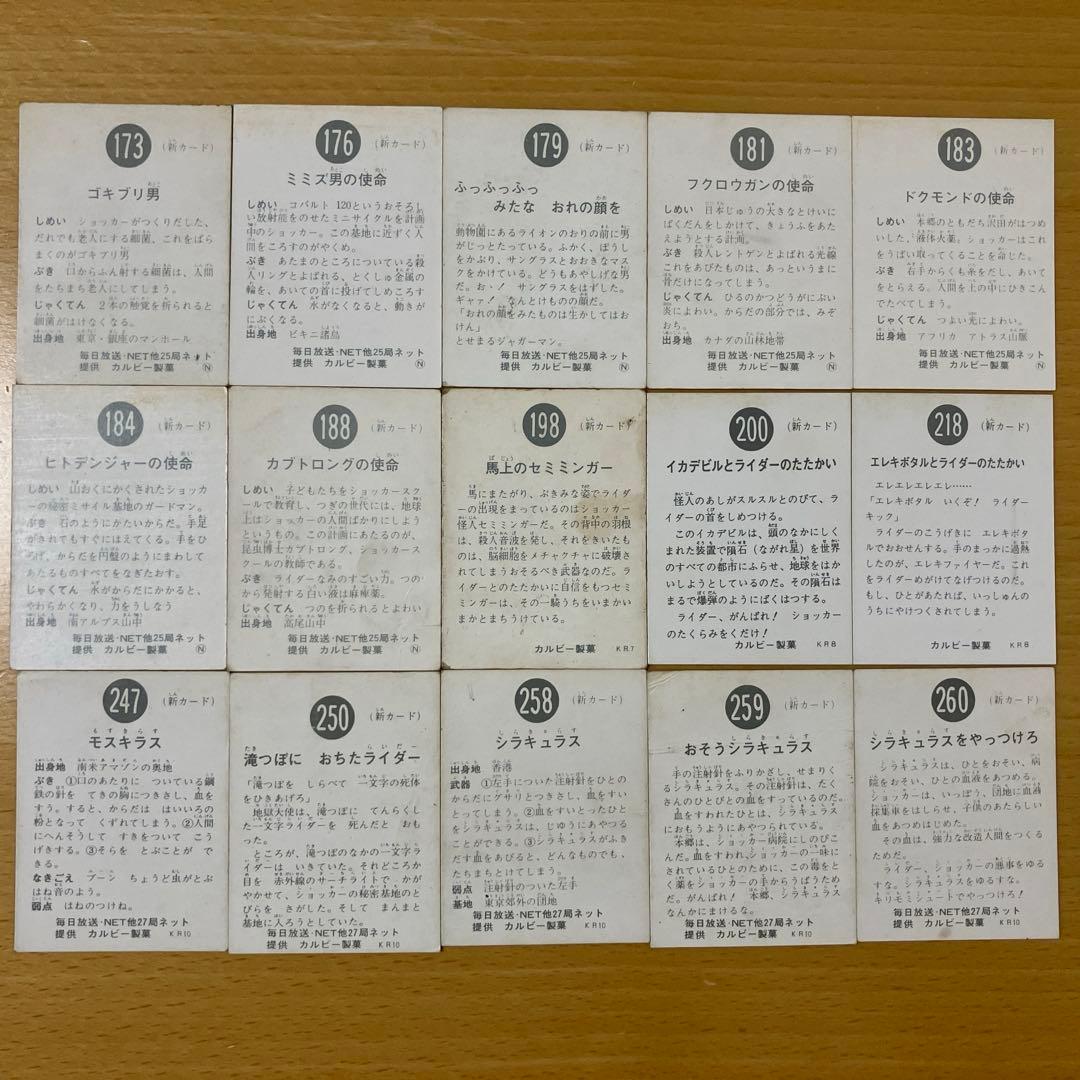 173
（新カード）
ゴキブリ男
しめい ショッカーがつくりだした、
だれでも老人にする細菌。これをばら
まくのがゴキブリ男
ぶき 口からふん射する細菌は、人間
をたちまち老人にしてしまう。
じゃくてん 2本の触覚を折られると
細菌がはけなくなる。
出身地 東京・銀座のマンホール
毎日放送・NET他25局ネット
提供 カルビー製菓 N
176
（新カード）
ミミズ男の使命
しめい コバルト120というおそろし
い放射能をのせたミニサイクルを計画
中のショッカー。この基地に近ずく人
間をころすのがやくめ。
ぶき あたまのところについている殺
人リングとよばれる、とくしゅ金属の
輪を、あいての首に投げてしめころす
じゃくてん 水がなくなると、動きが
にぶくなる。
出身地 ビキニ諸島
毎日放送・NET他25局ネット
提供 カルビー製菓 N
179
（新カード）
ふっふっふっ
みたな おれの顔を
動物園にあるライオンのおりの前に男
がじっとたっている。ふかく、ぼうし
をかぶり、サングラスとおおきなマス
クをかけている。どうもあやしげな男
だ。お・！ サングラスをはずした。
ギャァ！ なんとけものの顔だ。
「おれの顔をみたものは生かしてはお
けん」
とせまるジャガーマン。
毎日放送・NET他25局ネット
提供 カルビー製菓 N
181
（新カード）
フクロウガンの使命
しめい 日本じゅうの大きなとけいに
ばくだんをしかけて、きょうふをあた
えようとする計画。
ぶき 殺人レントゲンとよばれる光線
これをあびたものは、あっというまに
骨だけになってしまう。
じゃくてん ひるのかつどうがにぶい
炎によわい。からだの部分では、みぞ
おち。
出身地 カナダの山林地帯
毎日放送・NET他25局ネット
提供 カルビー製菓 N
183
（新カード）
ドクモンドの使命
しめい 本郷のともだち沢田がはつめ
いした、液体火薬。ショッカーはこれ
をうばい取ってくることを命じた。
ぶき 右手からくも糸をだし、あいて
をとらえる。人間を土の中にひきこん
でたべてしまう。
じゃくてん つよい光によわい。
出身地 アフリカ アトラス山脈
毎日放送・NET他25局ネット
提供 カルビー製菓 N
184
（新カード）
ヒトデンジャーの使命
しめい 山おくにかくされたショッカ
ーの秘密ミサイル基地のガードマン。
ぶき 石のようにかたいからだ。手足
がきれてもすぐにはえてくる。手をひ
ろげ、からだを円盤のようにまわして
あたるものすべてをなぎたおす。
じゃくてん 水がからだにかかると、
やわらかくなり、力をうしなう
出身地 南アルプス山中
毎日放送・NET他25局ネット
提供 カルビー製菓 N
188
（新カード）
カブトロングの使命
しめい 子どもたちをショッカースク
ールで教育し、つぎの世代には、地球
上はショッカーの人間ばかりにしよう
というもの。この計画にあたるのが、
昆虫博士カブトロング、ショッカース
クールの教師である。
ぶき ライダーなみのすごい力。つの
から発射する白い液は麻痺薬。
じゃくてん つのを折られるとよわい
出身地 高尾山中
毎日放送・NET他25局ネット
提供 カルビー製菓 N
198
（新カード）
馬上のセミミンガー
馬にまたがり、ぶきみな姿でライダ
ーの出現をまっているのはショッカー
怪人セミミンガーだ。その背中の羽根
は、殺人音波を発し、それをきいたも
のは、脳細胞をメチャクチャに破壊さ
れてしまうおそるべき武器なのだ。ラ
イダーとのたたかいに自信をもつセミ
ミンガーは、その一騎うちをいまかい
まかとまちうけている。
カルビー製菓 KR7
200
（新カード）
イカデビルとライダーのたたかい
怪人のあしがスルスルとのびて、ラ
イダーの首をしめつける。
このイカデビルは、頭のなかにしく
まれた装置で隕石（ながれ星）を世界
のすべての都市にふらせ、地球をはか
いしようとしているのだ。その隕石は
まるで爆弾のようにばくはつする。
ライダー、がんばれ！ ショッカー
のたくらみをくだけ！
カルビー製菓 KR8
218
（新カード）
エレキボタルとライダーのたたかい
エレエレエレエレ……
「エレキボタル いくぞ！ ライダー
キック」
ライダーのこうげきに エレキボタ
ルでおおせする。手のまっかに過熱
したのが、エレキファイヤーだ。これ
をライダーめがけてなげつけるのだ。
もし、ひとがあたれば、いっしゅんの
うちにやけつくされてしまう。
カルビー製菓 KR8
247
（新カード）
モスキラス
出身地 南米アマゾンの奥地
ぶき ①口のあたりに ついている鋼
鉄の針を てきの胸につきさし、血を
すう。すると、からだは はいいろの
粉となって くずれてしまう。②人間
にへんそうして すきをついて こう
げきする。③そらを とぶことが で
きる。
なきごえ ブーン ちょうど虫がとぶ
はね音のよう。
弱点 はねのつけね。
毎日放送・NET他27局ネット
提供 カルビー製菓 KR10
250
（新カード）
滝つぼに おちたライダー
「滝つぼを しらべて 一文字の死体
をひきあげろ」
地獄大使は、滝つぼに てんらくし
た一文字ライダーを 死んだと おも
った。
ところが、滝つぼのなかの一文字ラ
イダーは いきていた。それどころか
目を 赤外線のサーチライトで かが
やかせて、ショッカーの秘密基地のと
びらを さがした。そして まんまと
基地に入ろうとしていた。
毎日放送・NET他27局ネット
提供 カルビー製菓 KR10
258
（新カード）
シラキュラス
出身地 香港
武器 ①左手についた注射針をひとの
からだにグサリとつきさし、血をすい
とってしまう。②血をすいとったひと
をシラキュラスは、じゆうにあやつる
ことができる。③シラキュラスがふき
だす血をあびると、どんなものでも、
たちまちとけてしまう。
弱点 注射針のついた左手
基地 東京郊外の団地
毎日放送・NET他27局ネット
提供 カルビー製菓 KR10
259
（新カード）
おそうシラキュラス
手の注射針をふりかざし、せまりく
るシラキュラス。その注射針は、たく
さんのひとびとの血をすっているのだ。
血をすわれたひとは、シラキュラス
におもうようにあやつられている。
本郷は、ショッカー病院にしのびこ
んだ。血をすわれ、ショッカーの一味に
されているひとのために、この毒をと
く薬をショッカーの手からうばうため
だ。がんばれ！ 本郷、シラキュラス
なんかにまけるな。
毎日放送・NET他27局ネット
提供 カルビー製菓 KR10
260
（新カード）
シラキュラスをやっつけろ
シラキュラスは、ひとをおそい、病
院をおそい、ひとの血液をあつめる。
ショッカーは、いっぽう、団地に血液
採集車をはしらせ、子供のあたらしい
血をあつめはじめた。
その血は、強力な改造人間をつくる
ためだ。
ライダー、ショッカーの悪事をゆる
すな。シラキュラスをゆるすな。
キリモミシュートでやっつけろ！
毎日放送・NET他27局ネット
提供 カルビー製菓 KR10